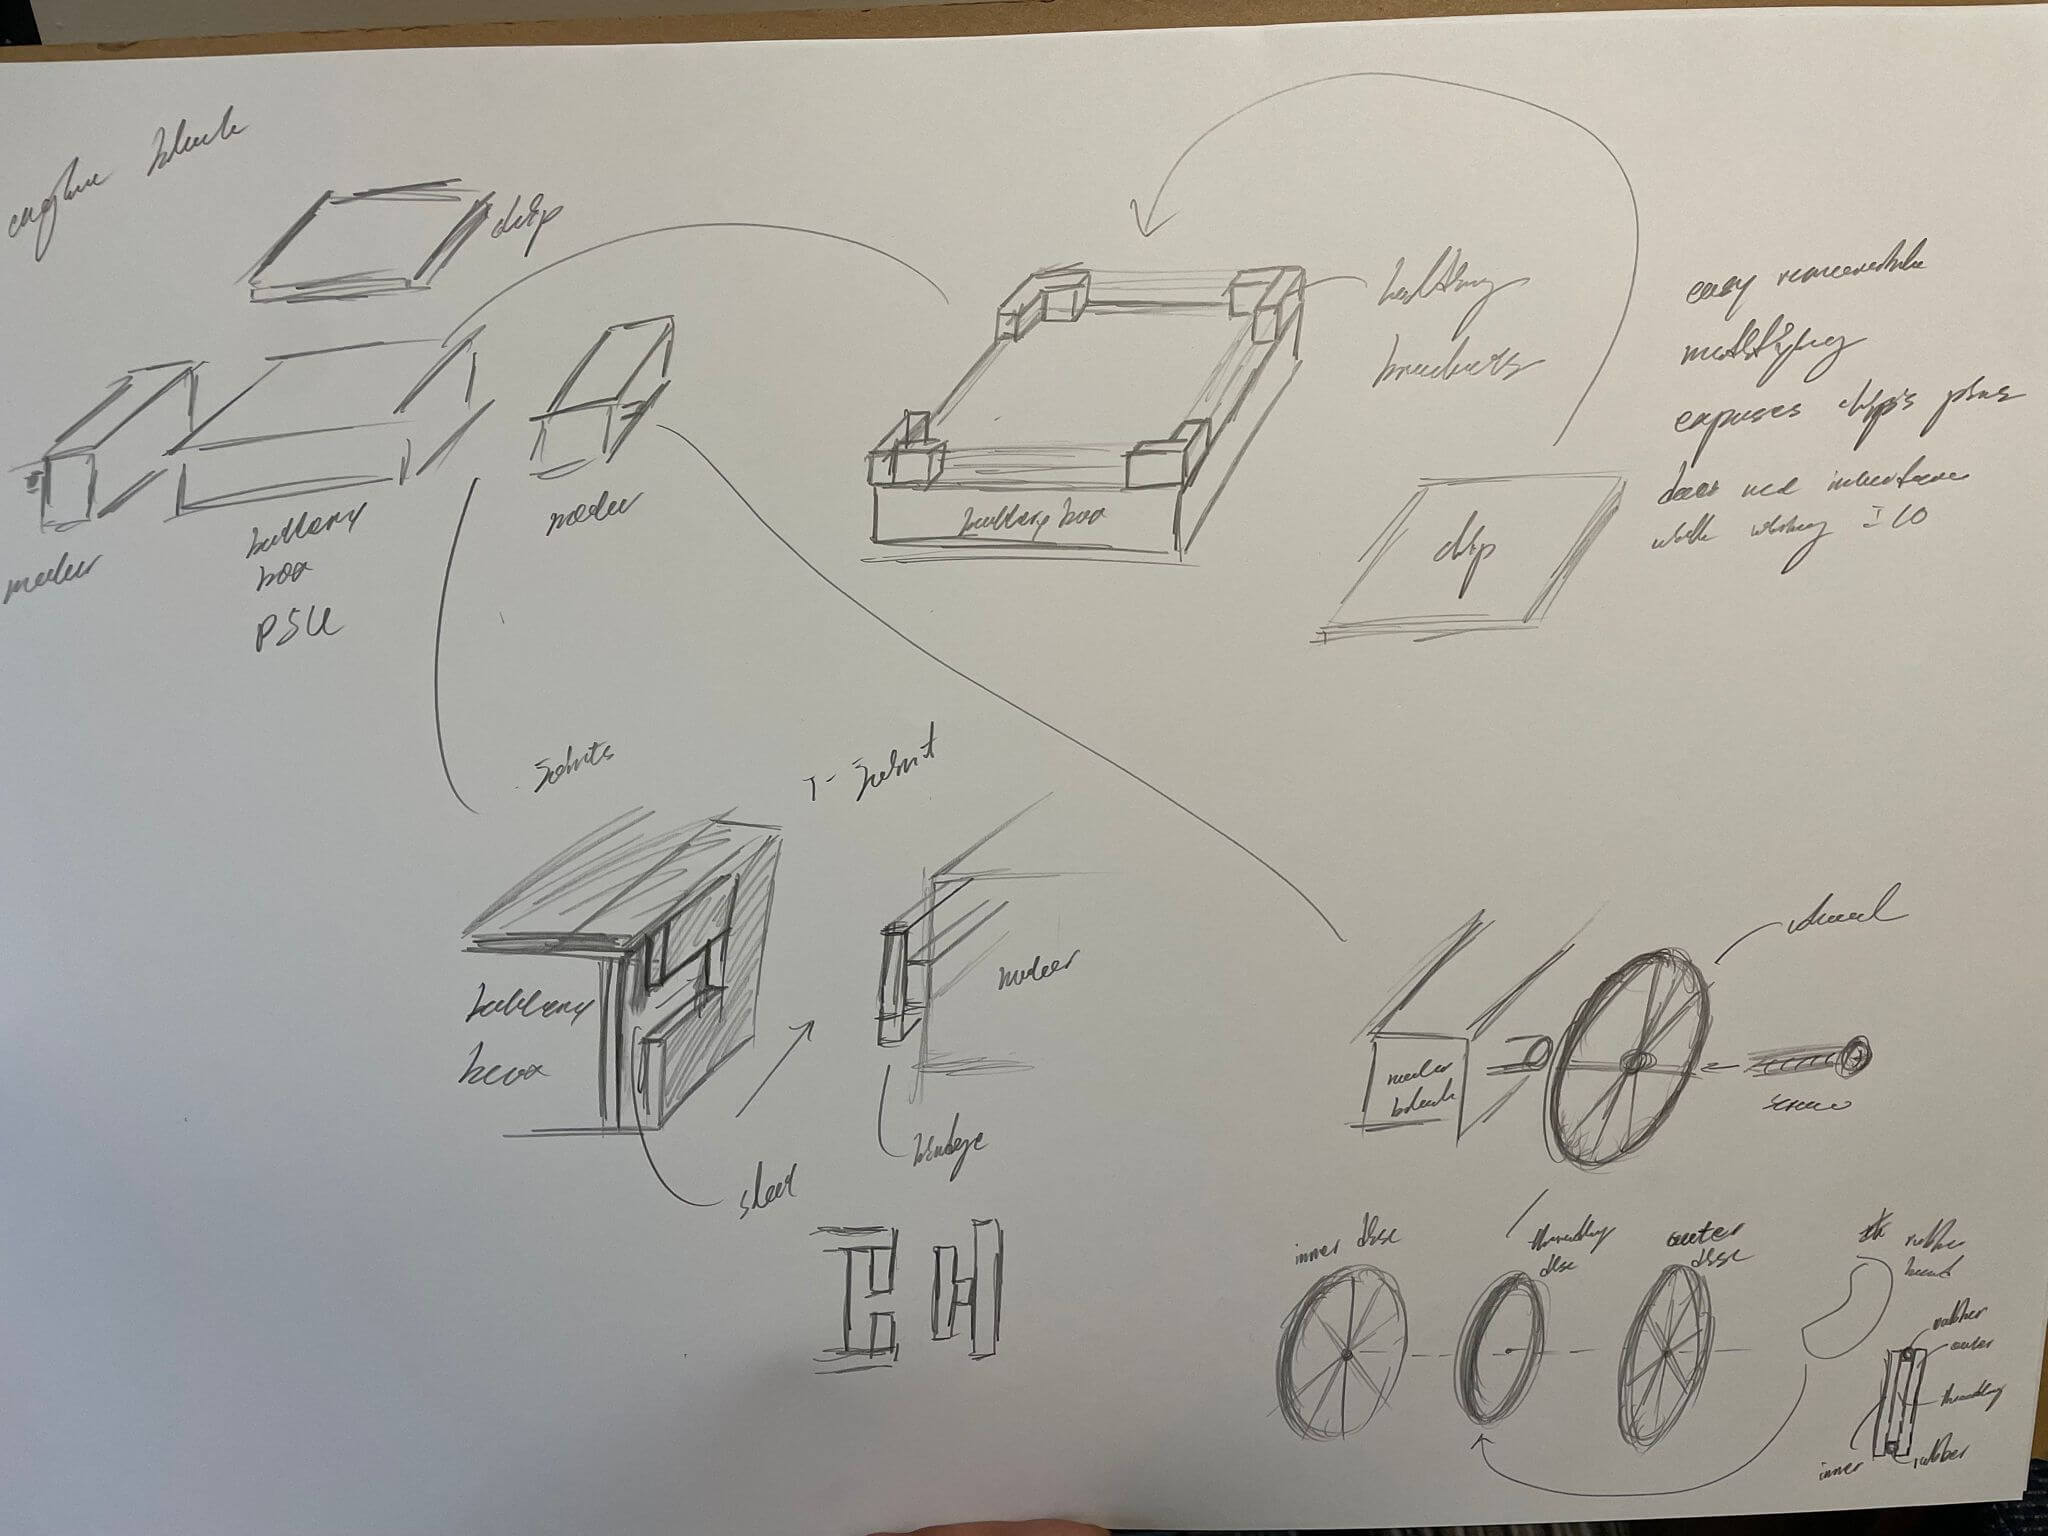 engine block
chip
motor
battery
box
PSU
motor
holding
brackets
battery box
chip
easy removable
exposes chip's pins
does not interfere
with wiring IO
Joints
T-Joint
battery
box
motor
slot
wedge
wheel
motor
block
screw
inner disc
threading
disc
outer
disc
rubber
band
rubber
outer
threading
inner
rubber